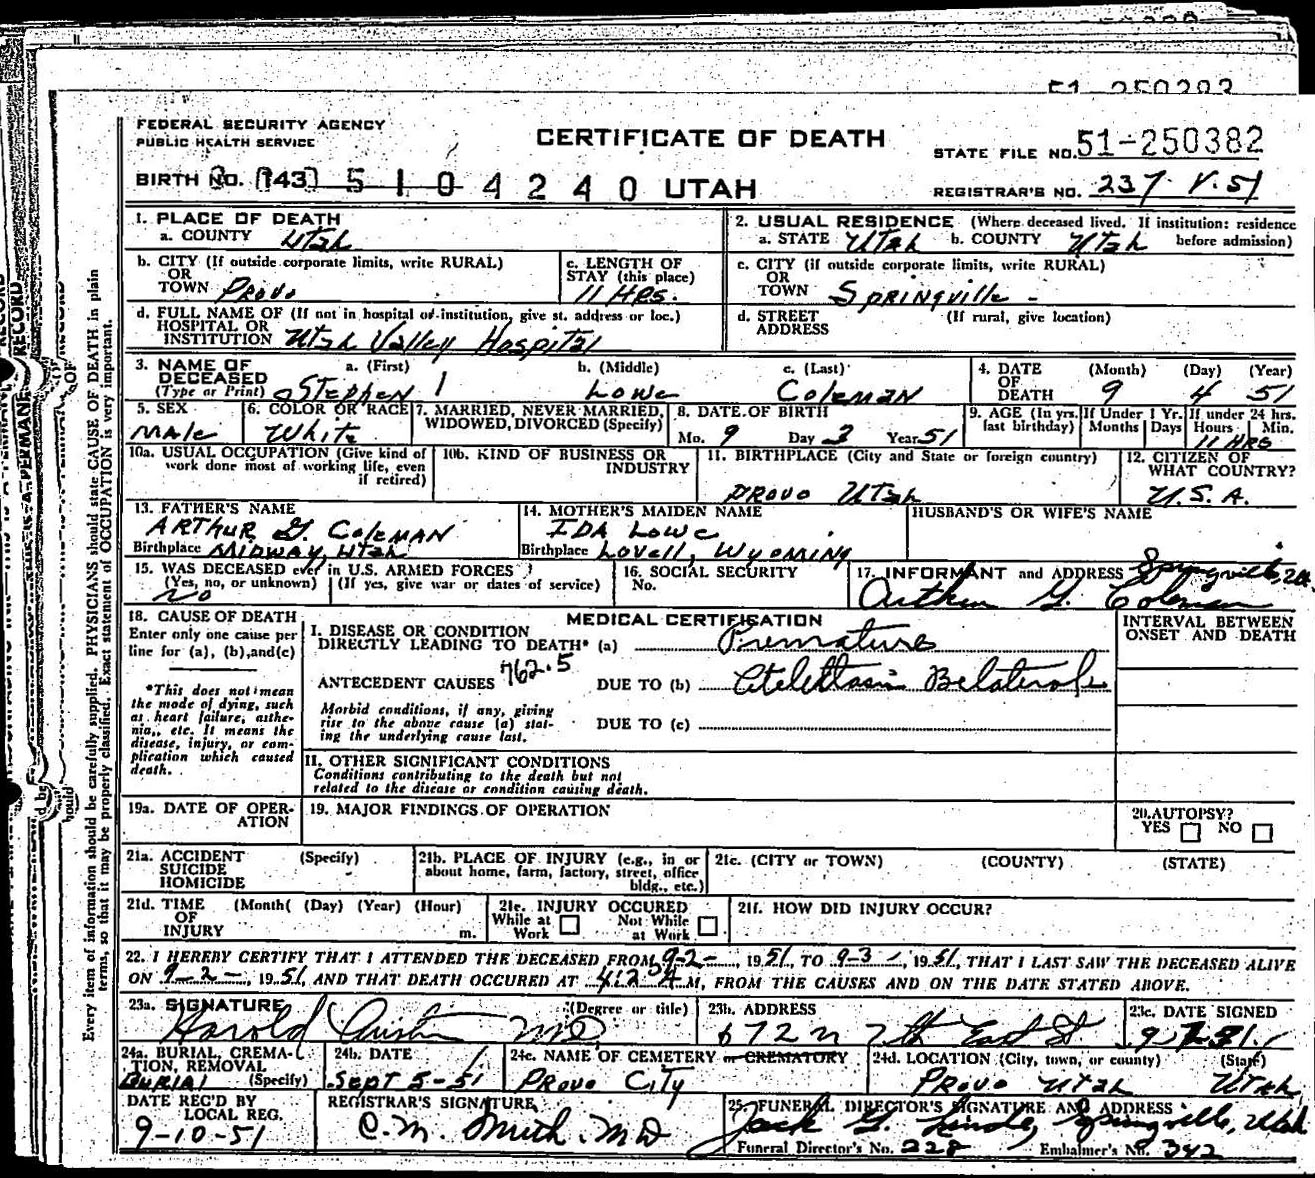 51-250383
FEDERAL SECURITY AGENCY
PUBLIC HEALTH SERVICE
CERTIFICATE OF DEATH
STATE FILE NO. 51-250382
BIRTH NO. 143 5 1 0 4 2 4 0 UTAH
REGISTRAR'S NO. 237 V.51
Every item of information should be carefully supplied. PHYSICIANS should state CAUSE OF DEATH in plain
terms, so that it may be properly classified. Exact statement of OCCUPATION is very important.
1. PLACE OF DEATH
a. COUNTY Utah
2. USUAL RESIDENCE (Where deceased lived. If institution: residence
a. STATE Utah b. COUNTY Utah before admission)
b. CITY (If outside corporate limits, write RURAL)
OR
TOWN Provo
c. LENGTH OF
STAY (this place)
11 HRS.
c. CITY (if outside corporate limits, write RURAL)
OR
TOWN Springville
d. FULL NAME OF (If not in hospital or institution, give st. address or loc.)
HOSPITAL OR
INSTITUTION Utah Valley Hospital
d. STREET (If rural, give location)
ADDRESS
3. NAME OF DECEASED
(Type or Print)
a. (First) b. (Middle) c. (Last)
Stephen Lowe Coleman
4. DATE OF DEATH (Month) (Day) (Year)
9 4 51
5. SEX
Male
6. COLOR OR RACE
White
7. MARRIED, NEVER MARRIED,
WIDOWED, DIVORCED (Specify)
8. DATE OF BIRTH
Mo. 9 Day 3 Year 51
9. AGE (In yrs. last birthday)
If Under 1 Yr. Months Days
If under 24 hrs. Hours Min.
11 HRS
10a. USUAL OCCUPATION (Give kind of
work done most of working life, even
if retired)
10b. KIND OF BUSINESS OR
INDUSTRY
11. BIRTHPLACE (City and State or foreign country)
Provo Utah
12. CITIZEN OF
WHAT COUNTRY?
U.S.A.
13. FATHER'S NAME
Arthur G. Coleman
Birthplace Midway, Utah
14. MOTHER'S MAIDEN NAME
Ida Lowe
Birthplace Lovell, Wyoming
HUSBAND'S OR WIFE'S NAME
15. WAS DECEASED ever in U.S. ARMED FORCES?
(Yes, no, or unknown) (If yes, give war or dates of service)
No
16. SOCIAL SECURITY
No.
17. INFORMANT and ADDRESS Springville
Arthur G. Coleman
18. CAUSE OF DEATH
Enter only one cause per
line for (a), (b), and (c)
*This does not mean
the mode of dying, such
as heart failure, asthe-
nia, etc. It means the
disease, injury, or com-
plication which caused
death.
MEDICAL CERTIFICATION
INTERVAL BETWEEN
ONSET AND DEATH
I. DISEASE OR CONDITION
DIRECTLY LEADING TO DEATH* (a) Premature
ANTECEDENT CAUSES 762.5 DUE TO (b) Atelettasis Belaterale
Morbid conditions, if any, giving
rise to the above cause (a) stat-
ing the underlying cause last.
DUE TO (c)
II. OTHER SIGNIFICANT CONDITIONS
Conditions contributing to the death but not
related to the disease or condition causing death.
19a. DATE OF OPER-
ATION
19. MAJOR FINDINGS OF OPERATION
20. AUTOPSY?
YES NO
21a. ACCIDENT (Specify)
SUICIDE
HOMICIDE
21b. PLACE OF INJURY (e.g., in or
about home, farm, factory, street, office
bldg., etc.)
21c. (CITY or TOWN) (COUNTY) (STATE)
21d. TIME (Month( (Day) (Year) (Hour)
OF
INJURY m.
21e. INJURY OCCURED
While at Work Not While at Work
21f. HOW DID INJURY OCCUR?
22. I HEREBY CERTIFY THAT I ATTENDED THE DECEASED FROM 9-2-, 1951, TO 9-3, 1951, THAT I LAST SAW THE DECEASED ALIVE
ON 9-2-, 1951, AND THAT DEATH OCCURED AT 4:20 A M, FROM THE CAUSES AND ON THE DATE STATED ABOVE.
23a. SIGNATURE (Degree or title)
Harold Austin MD
23b. ADDRESS
672 N 7th East St
23c. DATE SIGNED
24a. BURIAL, CREMA-
TION, REMOVAL
(Specify) Burial
24b. DATE
Sept 5-51
24c. NAME OF CEMETERY or CREMATORY
Provo City
24d. LOCATION (City, town, or county) (State)
Provo Utah Utah
DATE REC'D BY
LOCAL REG.
9-10-51
REGISTRAR'S SIGNATURE
C.M. Smith. MD
25. FUNERAL DIRECTOR'S SIGNATURE AND ADDRESS
Jack G. Springville, Utah
Funeral Director's No. 228 Embalmer's No. 342